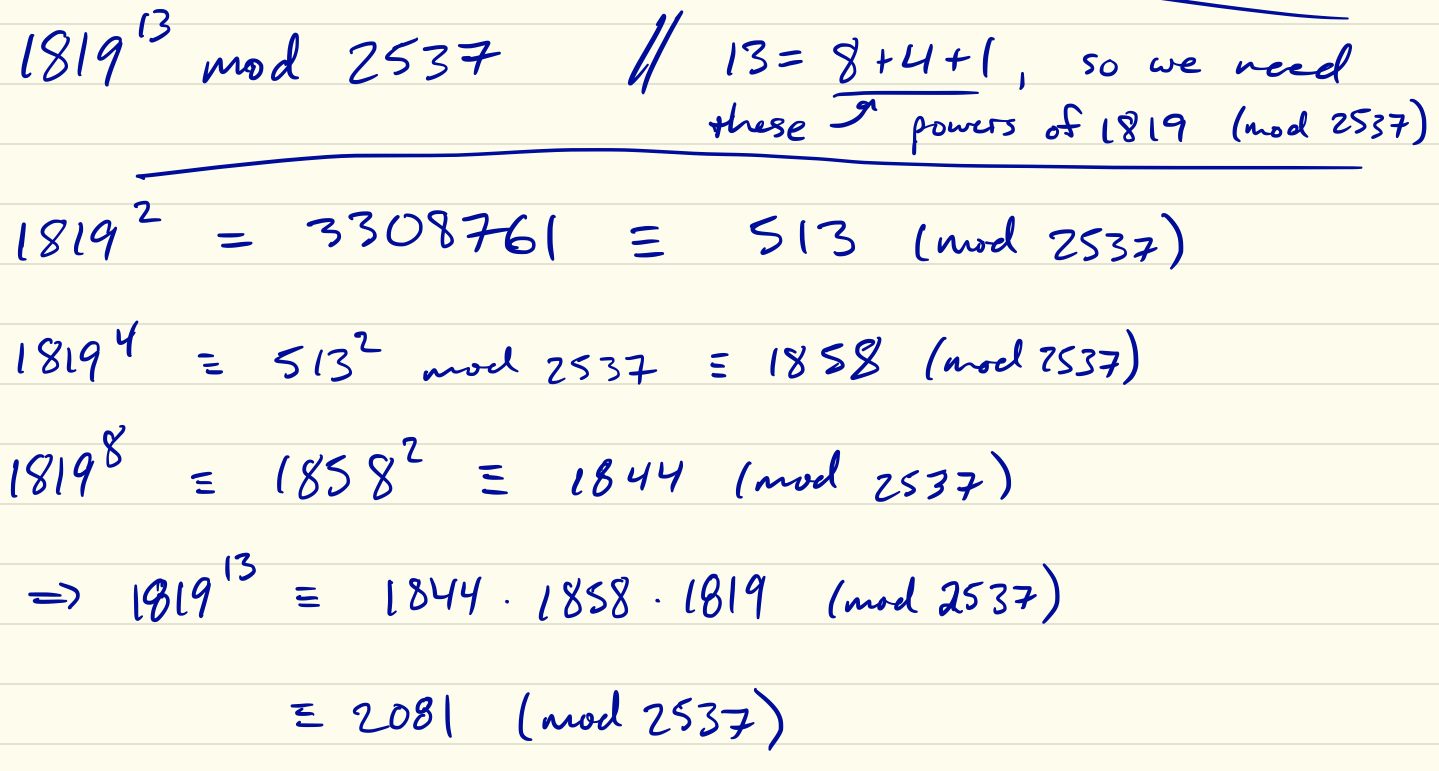 1819^13 mod 2537 // 13 = 8+4+1, so we need
these powers of 1819 (mod 2537)
1819^2 = 3308761 ≡ 513 (mod 2537)
1819^4 ≡ 513^2 mod 2537 ≡ 1858 (mod 2537)
1819^8 ≡ 1858^2 ≡ 1844 (mod 2537)
⇒ 1819^13 ≡ 1844 · 1858 · 1819 (mod 2537)
≡ 2081 (mod 2537)